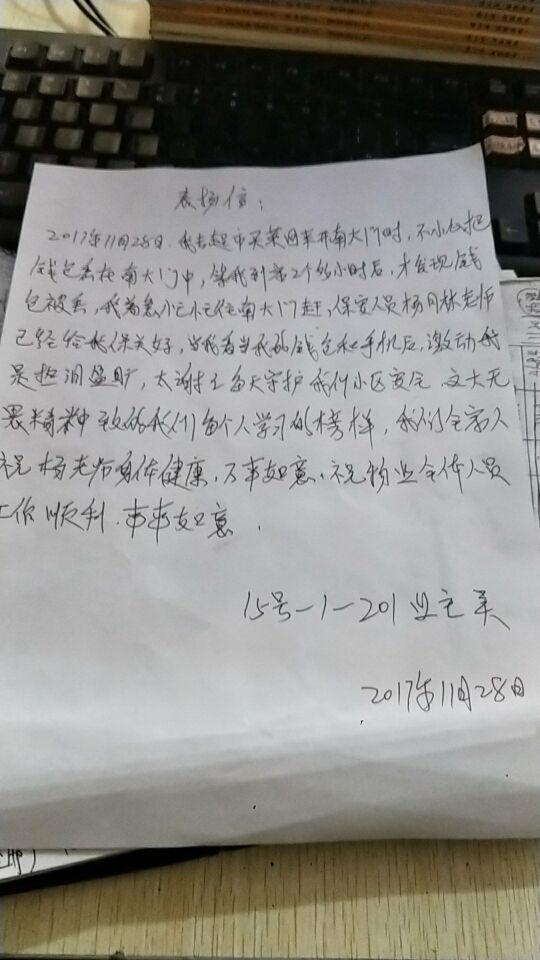 表扬信：
2017年11月28日，我去超市买菜回来开南大门时，不小心把
钱包丢在南大门中，等我到家2个多小时后，才发现钱
包被丢，我着急忙忙往南大门赶，保安人员杨月林老师
已经给我保关好，当我看当我的钱包和手机后，激动的
是热泪盈眶，太谢
天守护我们小区安全
我们每个人学习的榜样，我们全家人
祝杨老师身体健康，万事如意，祝物业全体人员
工作顺利，事事如意．
15号-1-201业主
2017年11月28日